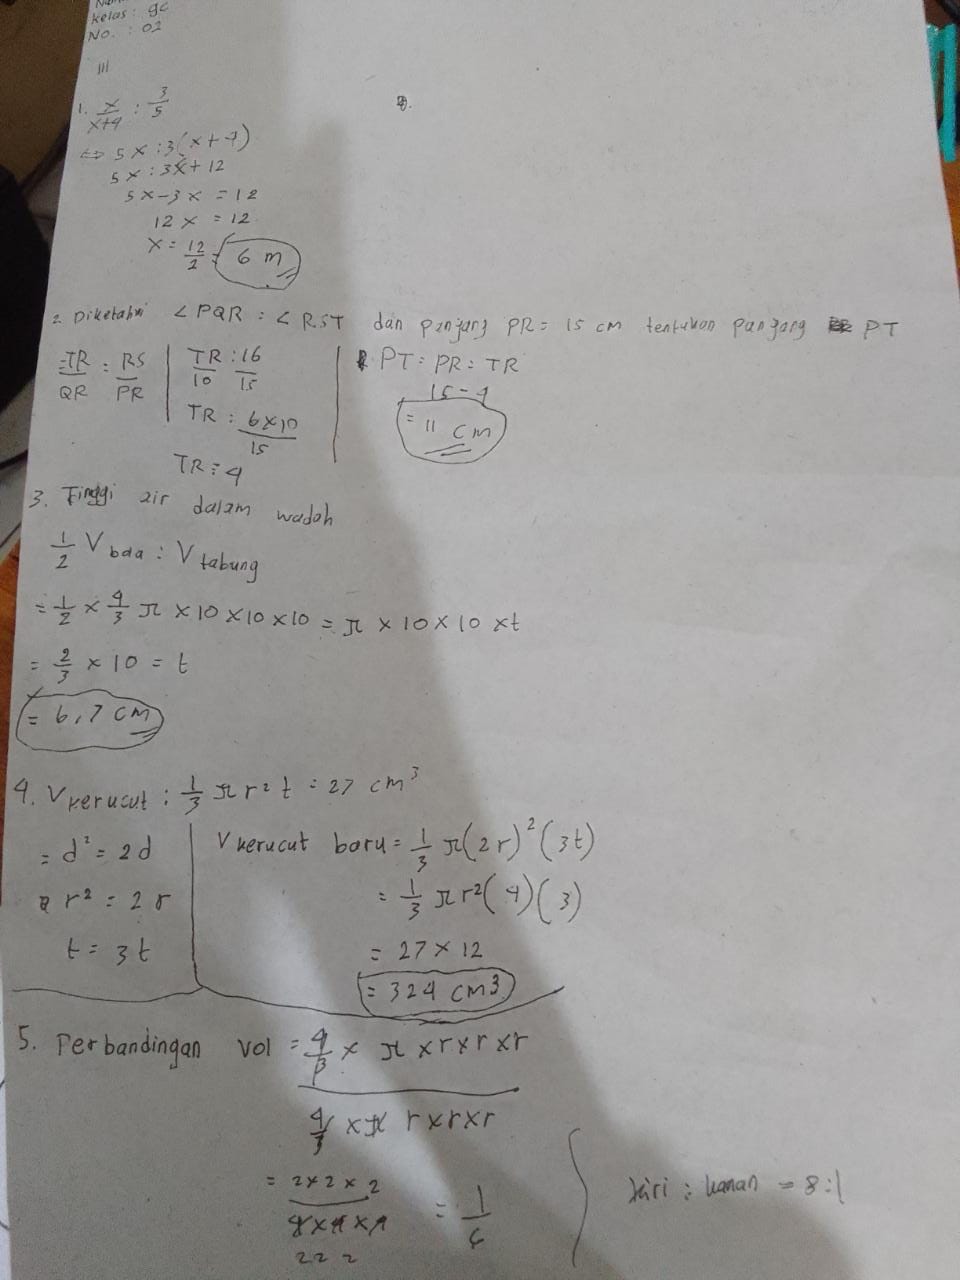 Kelas : 9c
No. : 02
III
1. x/x+4 : 3/5
⇔ 5x : 3(x+4)
5x : 3x + 12
5x-3x = 12
12x = 12
x = 12/2 = 6 m
2. Diketahui ∠PQR : ∠RST dan panjang PR = 15 cm tentukan panjang PT
=TR/QR : RS/PR
TR/10 : 16/15
TR : 6x10/15
TR = 4
PT : PR = TR
15-4
= 11 cm
3. Tinggi air dalam wadah
1/2 V bola : V tabung
= 1/2 x 4/3 π x 10 x 10 x 10 = π x 10 x 10 x t
= 2/3 x 10 = t
= 6,7 cm
4. V kerucut : 1/3 π r² t = 27 cm³
= d² = 2d
r² = 2r
t = 3t
V kerucut baru = 1/3 π(2r)²(3t)
= 1/3 π r²(4)(3)
= 27 x 12
= 324 cm3
5. Perbandingan vol = 4/3 x π x r x r x r
4/3 x π r x r x r
= 2 x 2 x 2
4 x 4 x 4
2 2 2
kiri : kanan = 8:1